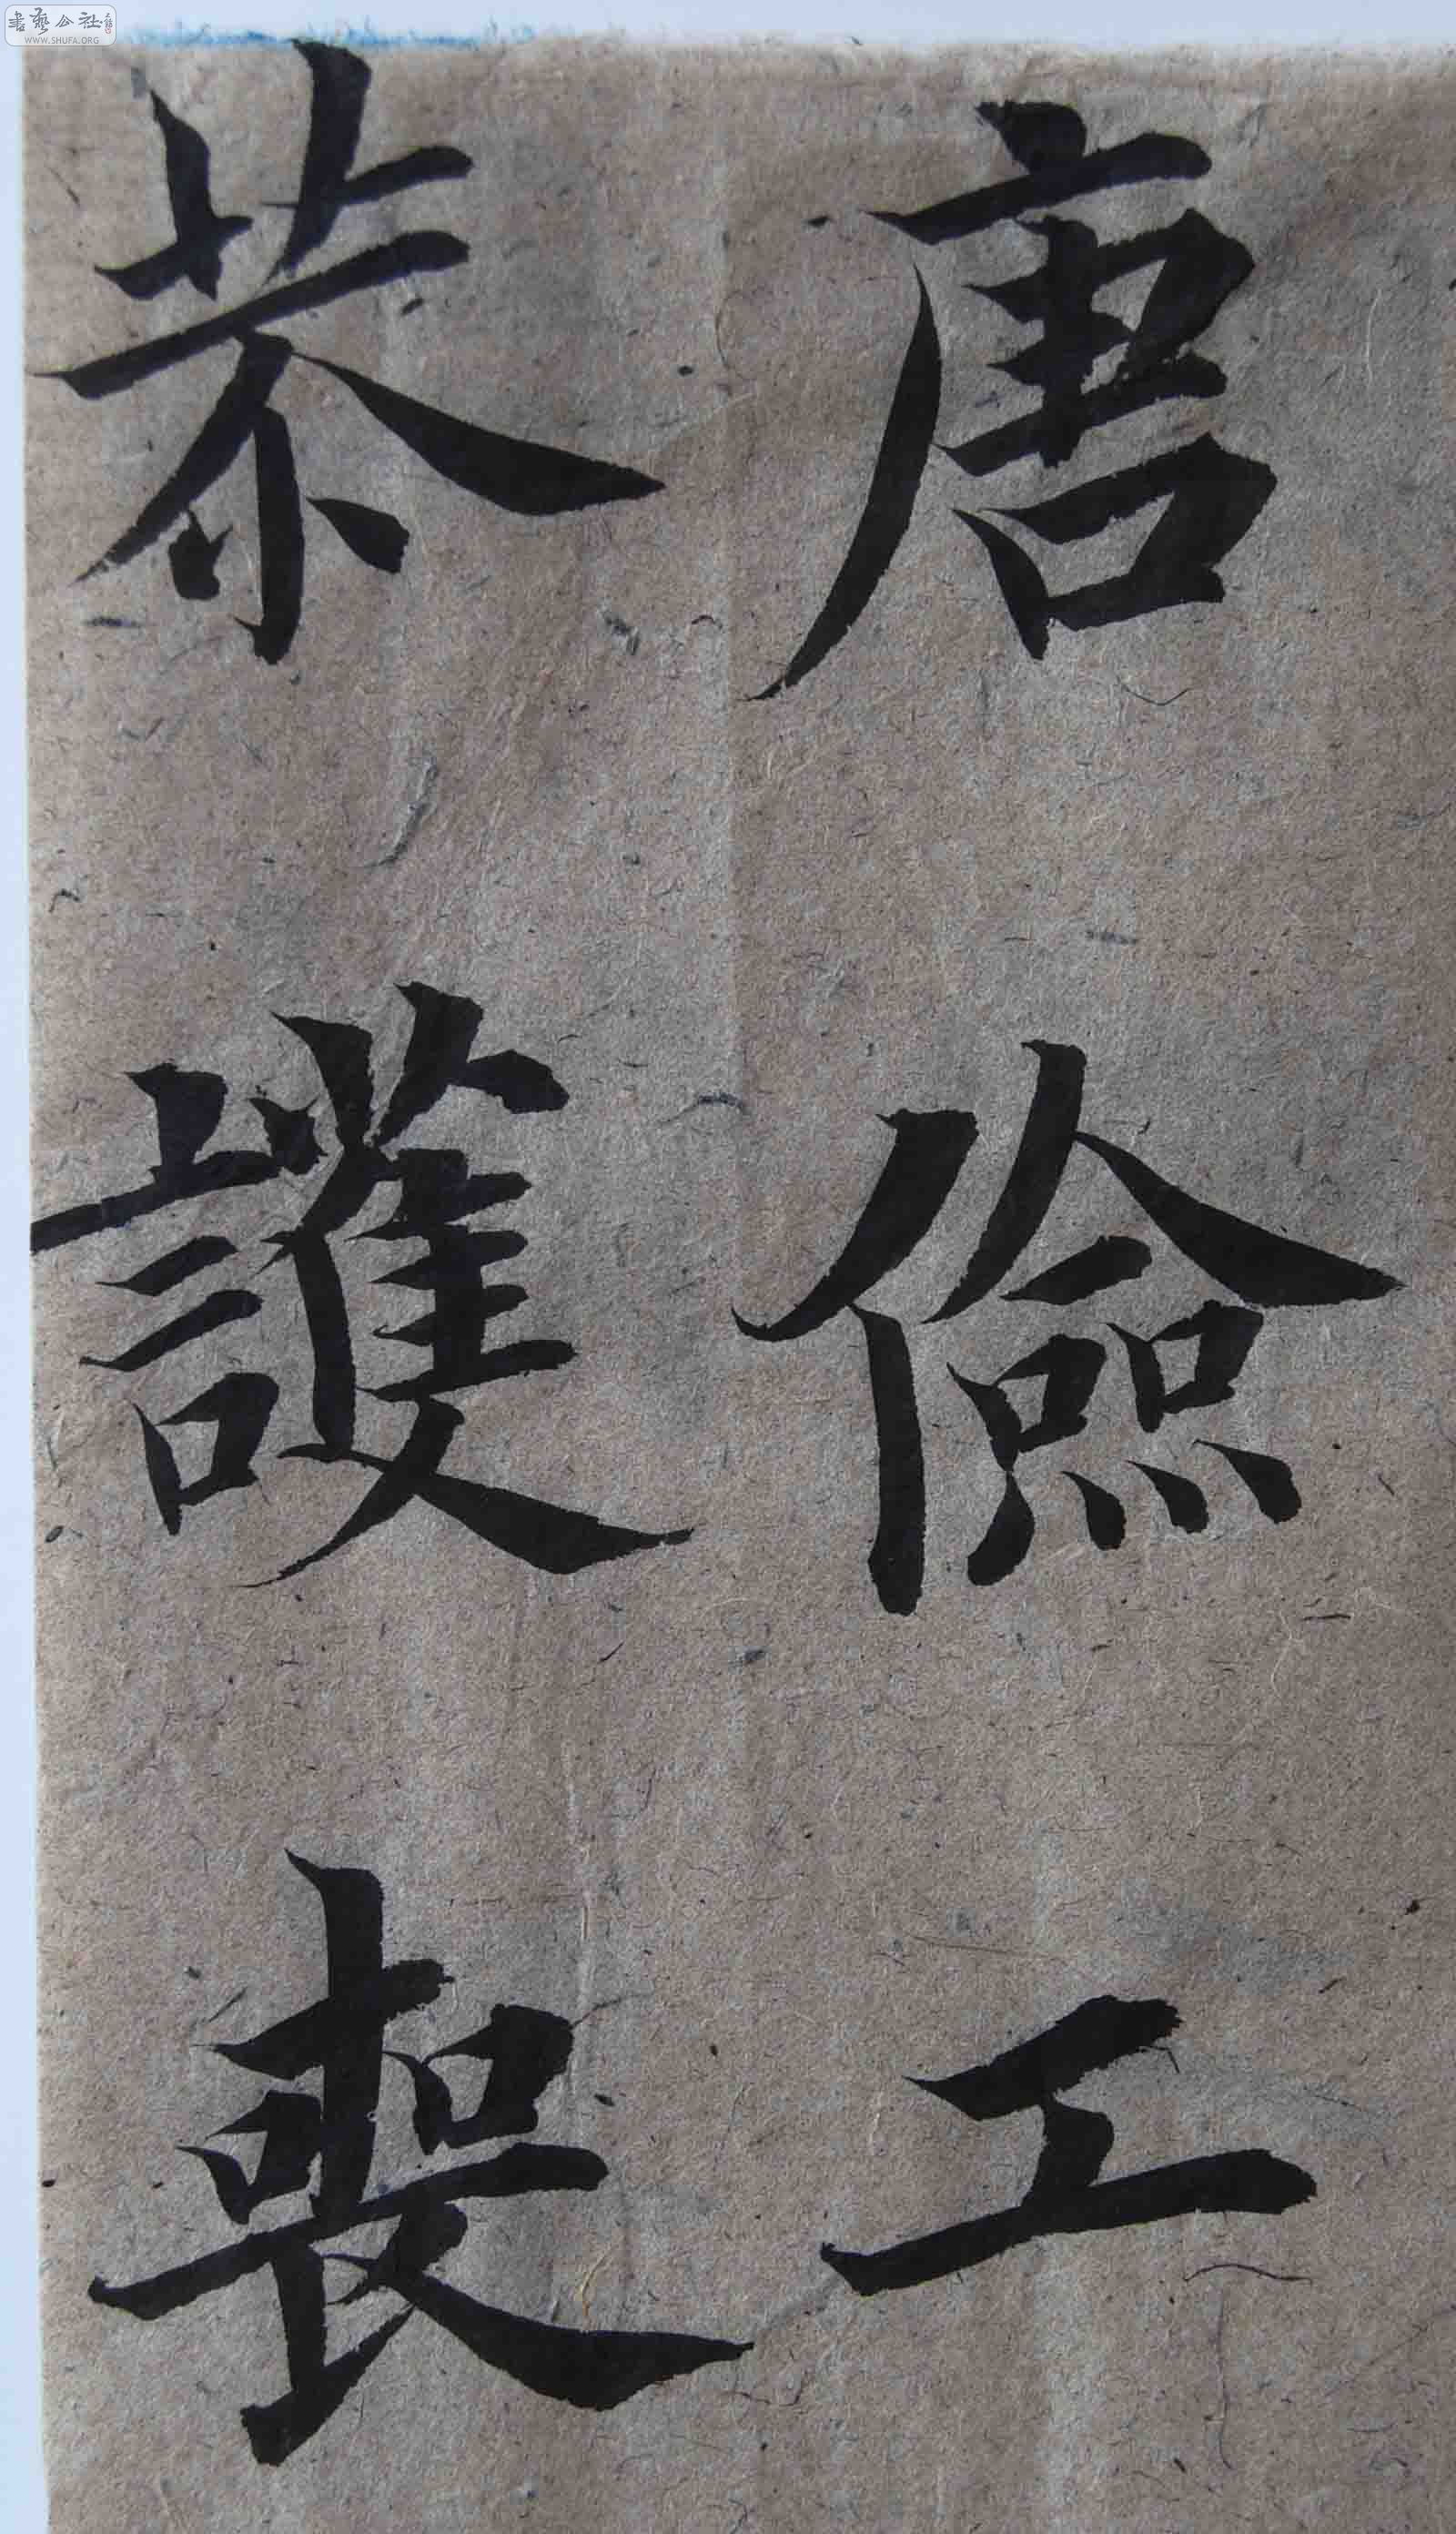 唐儉工
恭護喪
書藝公社
WWW.SHUFA.ORG